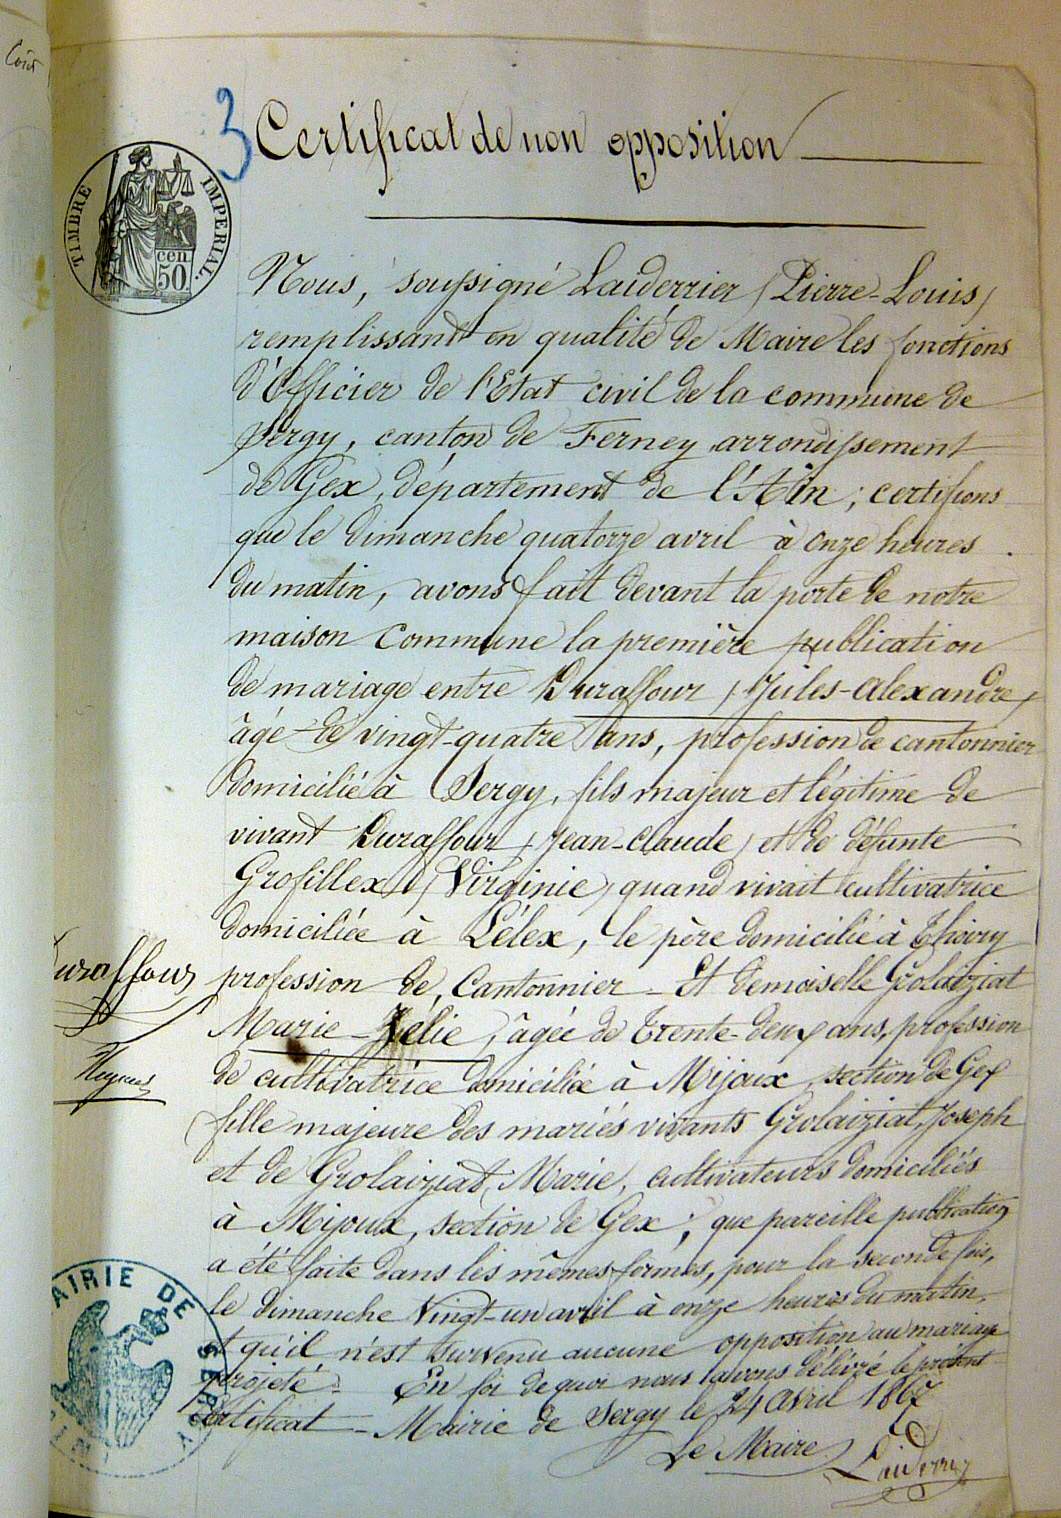 3
Certificat de non opposition
TIMBRE IMPERIAL.
cen.
50.
Nous, soussigné Laiderrier (Pierre-Louis)
remplissant en qualité de Maire les fonctions
d'Officier de l'Etat civil de la commune de
Sergy, canton de Ferney arrondissement
de Gex, département de l'Ain ; certifions
que le dimanche quatorze avril à onze heures
du matin, avons fait devant la porte de notre
maison commune la première publication
de mariage entre Duraffour (Jules-Alexandre)
âgé de vingt-quatre ans, profession de cantonnier
domicilié à Sergy, fils majeur et légitime de
vivant Duraffour (Jean-Claude) et de défunte
Grofillex (Virginie) quand vivait cultivatrice
domiciliée à Lélex, le père domicilié à Thoiry
profession de Cantonnier - Et demoiselle Grolaiziat
Marie-Zelie, âgée de trente-deux ans, profession
de cultivatrice domiciliée à Mijoux, section de Gex
fille majeure des mariés vivants Grolaiziat, Joseph
et de Grolaiziat, Marie, cultivateurs domiciliés
à Mijoux, section de Gex ; que pareille publication
a été faite dans les mêmes formes, pour la seconde fois,
le dimanche Vingt-un avril à onze heures du matin,
et qu'il n'est survenu aucune opposition au mariage
projeté - En foi de quoi nous avons délivré le présent
certificat - Mairie de Sergy le 24 avril 1867
Le Maire
Laiderrier
Duraffour
MAIRIE DE SERGY
(AIN)